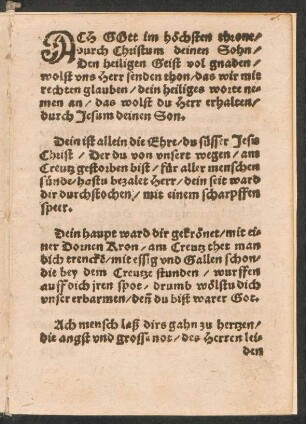 ACH GOtt im höchsten throne/
durch Christum deinen Sohn/
Den heiligen Geist vol gnaden/
wolst vns Herr senden thon/das wir mit
rechten glauben/dein heiliges worte ne-
men an/ das wolst du Herr erhalten/
durch Jesum deinen Son.
Dein ist allein die Ehre/du süsser Jesu
Christ/ Der du von vnsert wegen/ am
Creutz gestorben bist/für aller menschen
sünde/hastu bezalet Herr/dein seit ward
dir durchstochen/ mit einem scharpffen
speer.
Dein haupt ward dir gekrönet/mit ei-
ner Dornen Kron/am Creutz thet man
dich trencke/mit essig vnd Gallen schon/
die bey dem Creutze stunden/ wurffen
auff dich jren spot/ drumb wölstu dich
vnser erbarmen/deñ du bist warer Got.
Ach mensch laß dirs gahn zu hertzen/
die angst vnd grosse not/des Herren lei-
den